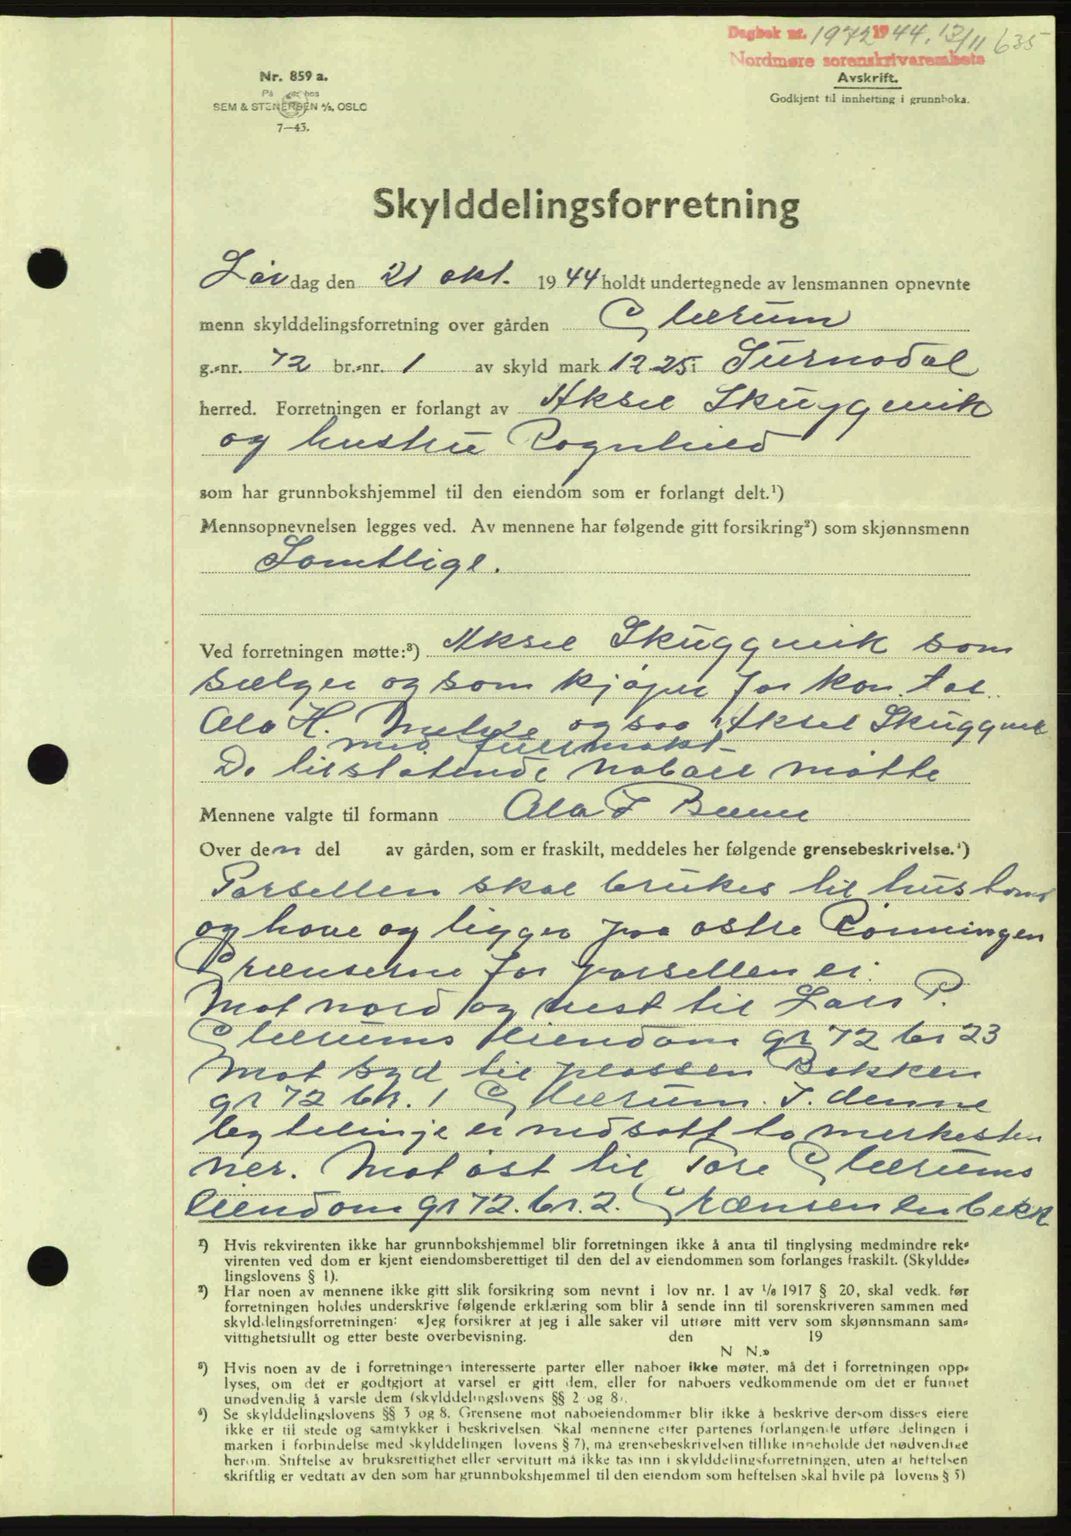 Dagbok nr. 1972 1944. 13/11 635
Nordmøre sorenskriverembete
Avskrift.
Godkjent til innhefting i grunnboka.
Nr. 859 a.
På hos
SEM & STENERSEN A/S, OSLO
7—43.
Skylddelingsforretning
Lørdag den 21 okt. 1944 holdt undertegnede av lensmannen opnevnte
menn skylddelingsforretning over gården Glærum
g.-nr. 72 br.-nr. 1 av skyld mark 12.25 i Surnadal
herred. Forretningen er forlangt av Aksel Skuggevik
og hustru Ragnhild
som har grunnbokshjemmel til den eiendom som er forlangt delt.¹)
Mennsopnevnelsen legges ved. Av mennene har følgende gitt forsikring²) som skjønnsmenn
Samtlige.
Ved forretningen møtte:³) Aksel Skuggevik som
selger og som kjøper for
Ola H. også Aksel Skuggevik
med fullmakt
De tilstøtende naboer møtte
Mennene valgte til formann Ola
Over den del av gården, som er fraskilt, meddeles her følgende grensebeskrivelse.⁴)
Parsellen skal brukes til hustomt
og have og ligger på østre Rønningen
Grænserne for parsellen er:
Mot nord og vest til Lars P.
Glærums eiendom gr 72 br 23
Mot syd til plassen Bakken
gr 72 br. 1 Glærum. I denne
bytelinje er nedsatt to merkeste
ner. Mot øst til Tore Glærums
eiendom gr 72. br. 2. Grænsen en bekk
¹) Hvis rekvirenten ikke har grunnbokshjemmel blir forretningen ikke å anta til tinglysing medmindre rek-
virenten ved dom er kjent eiendomsberettiget til den del av eiendommen som forlanges fraskilt. (Skyldde-
lingslovens § 1).
²) Har noen av mennene ikke gitt slik forsikring som nevnt i lov nr. 1 av 1/6 1917 § 20, skal vedk. før
forretningen holdes underskrive følgende erklæring som blir å sende inn til sorenskriveren sammen med
skylddelingsforretningen: «Jeg forsikrer at jeg i alle saker vil utføre mitt verv som skjønnsmann sam-
vittighetsfullt og etter beste overbevisning. den 19
N N.»
³) Hvis noen av de i forretningen interesserte parter eller naboer ikke møter, må det i forretningen opp-
lyses, om det er godtgjort at varsel er gitt dem, eller for naboers vedkommende om det er funnet
unødvendig å varsle dem (skylddelingslovens §§ 2 og 8).
⁴) Se skylddelingslovens §§ 3 og 8. Grensene mot naboeiendommer blir ikke å beskrive dersom disses eiere
ikke er til stede og samtykker i beskrivelsen. Skal mennene etter partenes forlangende utføre delingen i
marken i forbindelse med skylddelingen lovens § 7), må grensebeskrivelsen tillike inneholde det nødvendige
herom. Stiftelse av bruksrettighet eller servitutt må ikke tas inn i skylddelingsforretningen, uten at heftelsen
skriftlig er vedtatt av den som har grunnbokshjemmel til den eiendom som heftelsen skal hvile på lovens § 5)